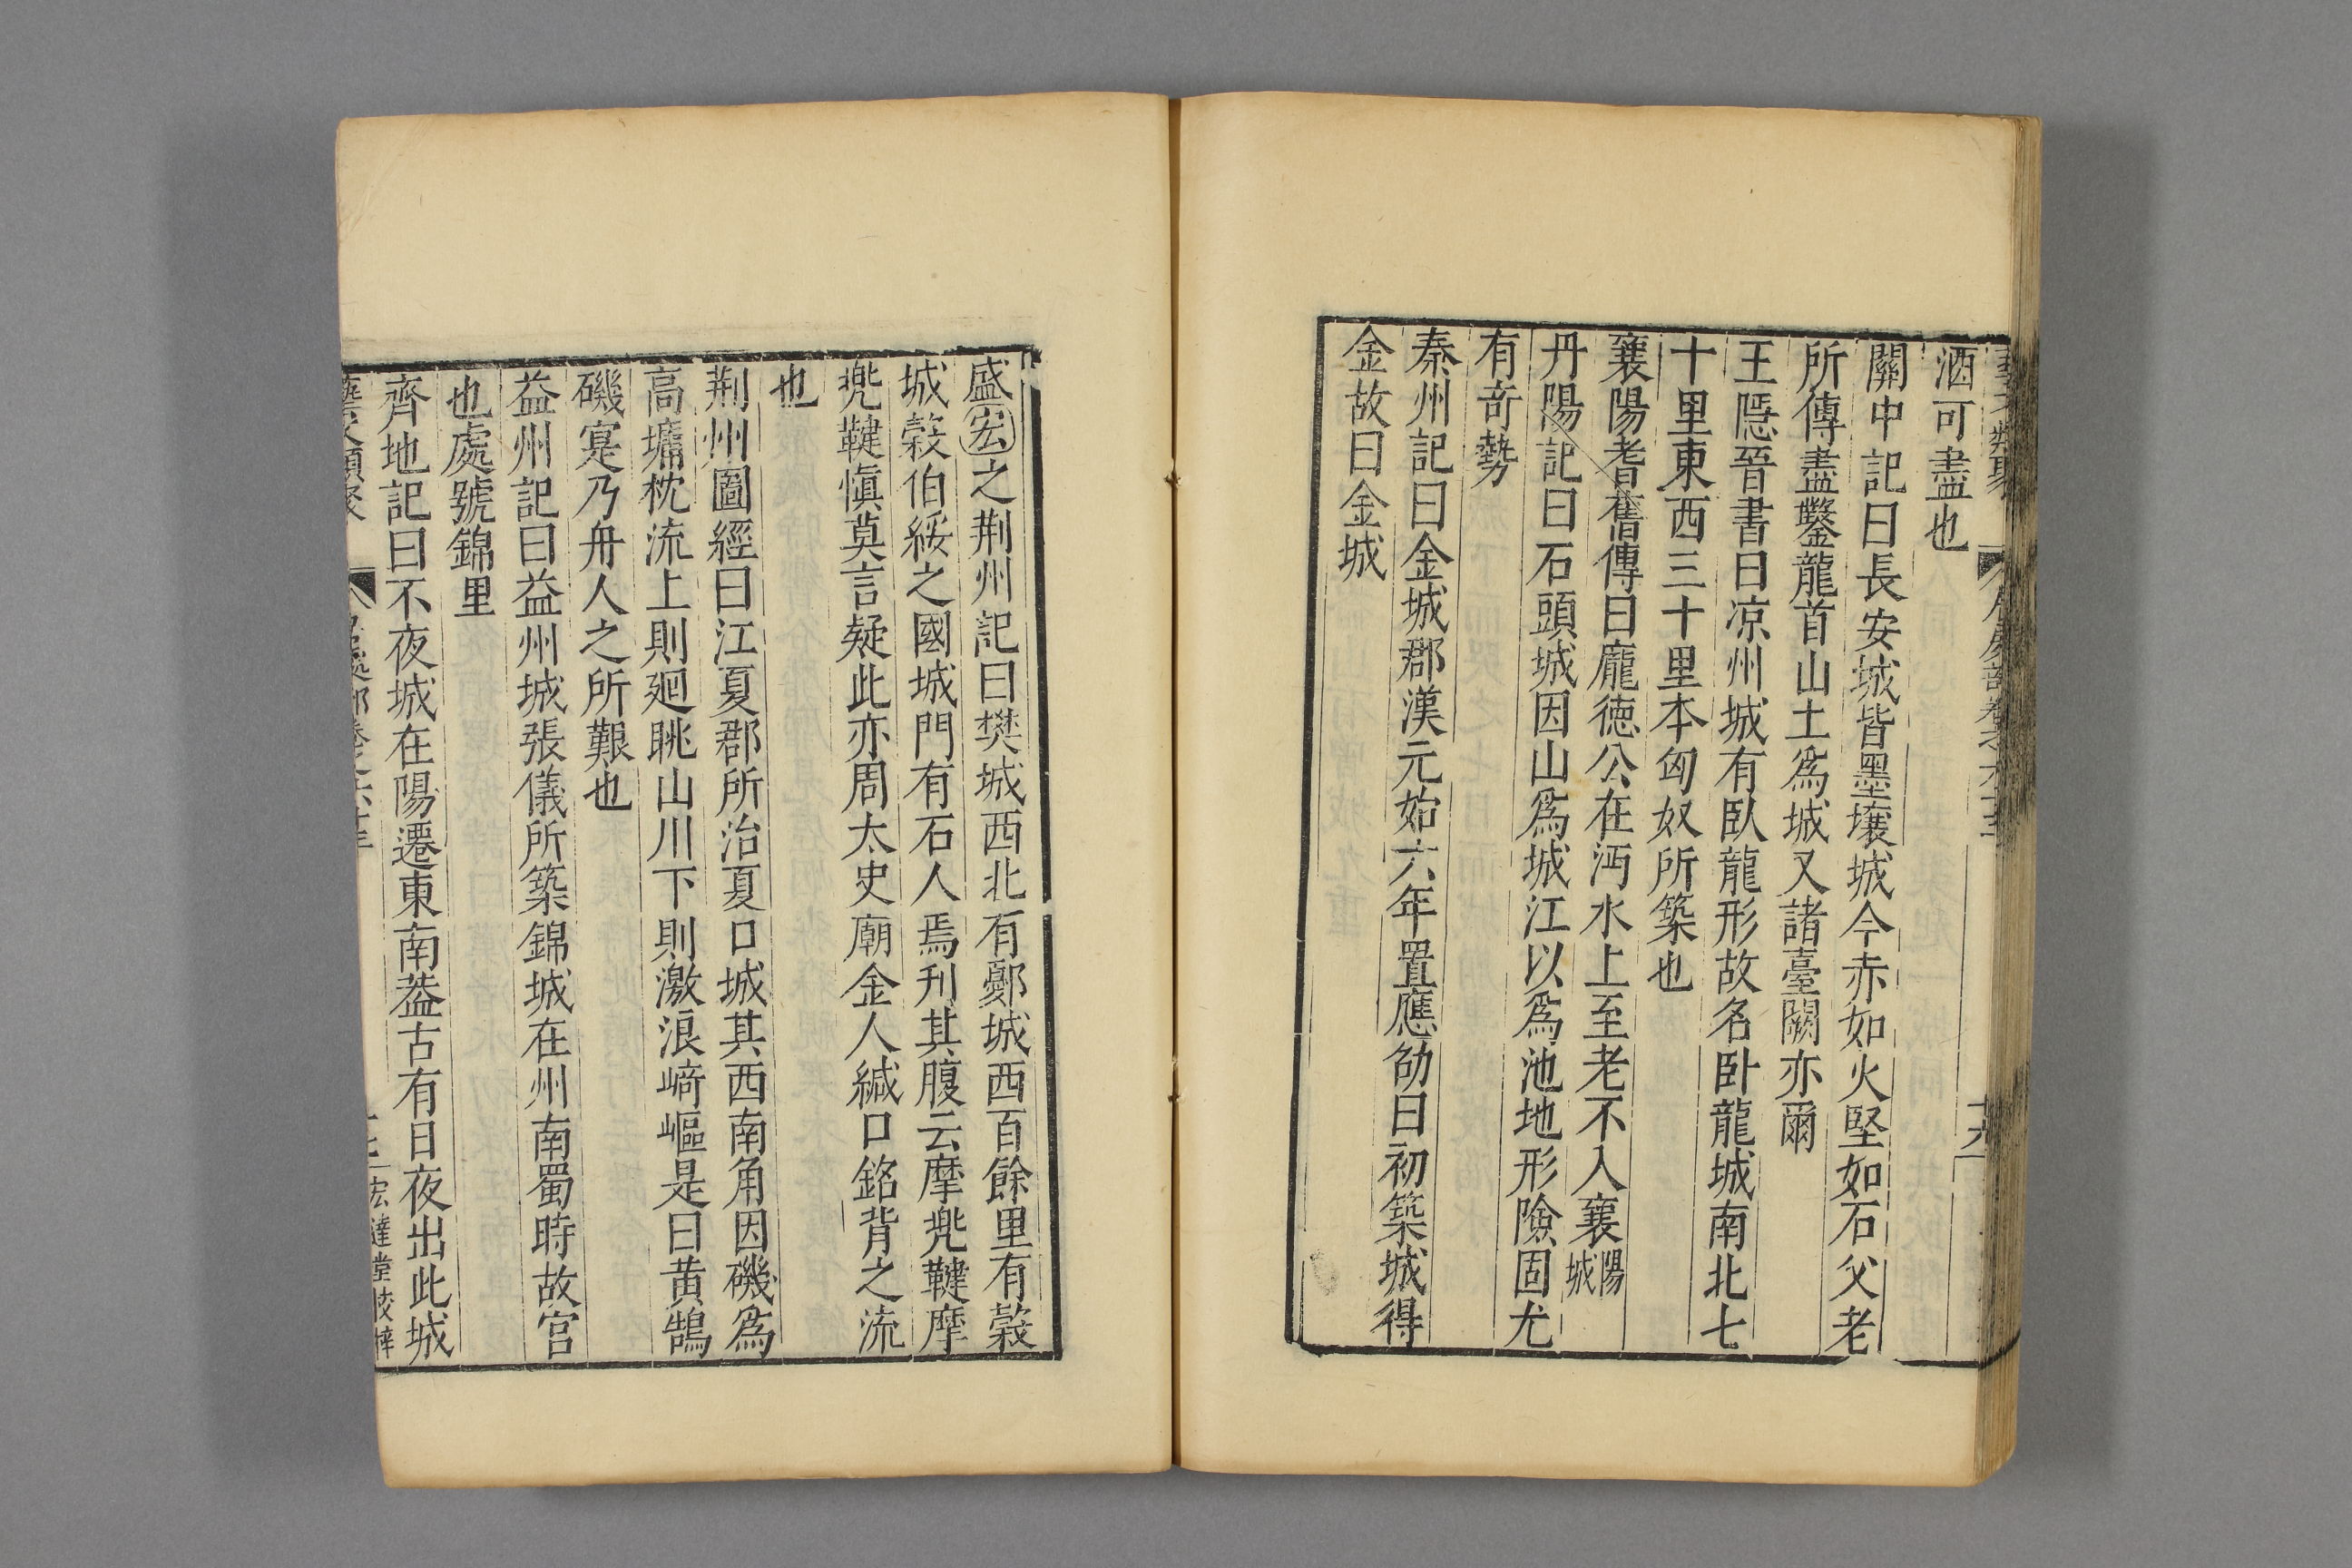 酒可盡也
關中記曰長安城皆墨壤城今赤如火堅如石父老
所傳盡鑿龍首山土爲城又諸臺闕亦爾
王隱晉書曰凉州城有臥龍形故名卧龍城南北七
十里東西三十里本匈奴所築也
襄陽耆舊傳曰龐德公在沔水上至老不入襄陽城
丹陽記曰石頭城因山爲城江以爲池地形險固尤
有奇勢
秦州記曰金城郡漢元始六年置應劭曰初築城得
金故曰金城
盛宏之荆州記曰樊城西北有鄾城西百餘里有榖
城榖伯綏之國城門有石人焉刋其腹云摩兠鞬摩
兠鞬慎莫言疑此亦周太史廟金人緘口銘背之流
也
荆州圖經曰江夏郡所治夏口城其西南角因磯爲
高墉枕流上則迴眺山川下則激浪﨑嶇是曰黄鵠
磯寔乃舟人之所艱也
益州記曰益州城張儀所築錦城在州南蜀時故宫
也處號錦里
齊地記曰不夜城在陽遷東南葢古有日夜出此城
藝文類聚 居處部卷之六十三 宏達堂校梓